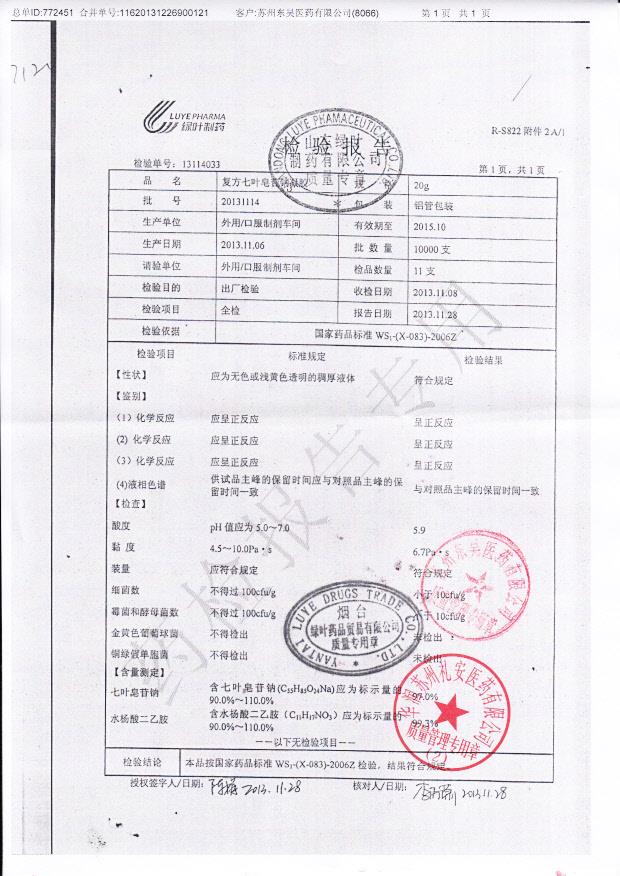 总单ID:772451 合并单号:11620131226900121 客户:苏州东吴医药有限公司(8066) 第1页 共1页
LUYE PHARMA
绿叶制药
R-S822 附件 2 A/1
检验报告
检验单号: 13114033 第1页,共1页
品 名 复方七叶皂苷钠凝胶 20g
批 号 20131114 包 装 铝管包装
生产单位 外用/口服制剂车间 有效期至 2015.10
生产日期 2013.11.06 批 数 量 10000 支
请验单位 外用/口服制剂车间 检品数量 11 支
检验目的 出厂检验 收检日期 2013.11.08
检验项目 全检 报告日期 2013.11.28
检验依据 国家药品标准 WS₁-(X-083)-2006Z
检验项目 标准规定 检验结果
【性状】 应为无色或浅黄色透明的稠厚液体 符合规定
【鉴别】
(1) 化学反应 应呈正反应 呈正反应
(2) 化学反应 应呈正反应 呈正反应
(3) 化学反应 应呈正反应 呈正反应
(4)液相色谱 供试品主峰的保留时间应与对照品主峰的保
留时间一致 与对照品主峰的保留时间一致
【检查】
酸度 pH 值应为 5.0~7.0 5.9
黏 度 4.5~10.0Pa·s 6.7Pa·s
装量 应符合规定 符合规定
细菌数 不得过 100cfu/g 小于 10cfu/g
霉菌和酵母菌数 不得过 100cfu/g 小于 10cfu/g
金黄色葡萄球菌 不得检出 未检出
铜绿假单胞菌 不得检出 未检出
【含量测定】
七叶皂苷钠 含七叶皂苷钠(C₅₅H₈₅O₂₄Na)应为标示量的
90.0%~110.0% 97.0%
水杨酸二乙胺 含水杨酸二乙胺(C₁₁H₁₇NO₃)应为标示量的
90.0%~110.0% 99.3%
——以下无检验项目——
检验结论 本品按国家药品标准 WS₁-(X-083)-2006Z 检验,结果符合规定。
授权签字人/日期: 2013.11.28 核对人/日期: 2013.11.28
SHANDONG LUYE PHAMACEUTICAL CO. LTD.
山东绿叶
制药有限公司
质量专章
YANTAI LUYE DRUGS TRADE CO., LTD.
烟台
绿叶药品贸易有限公司
质量专用章
华润苏州礼安医药有限公司
质量管理专用章
(2)
药检报告专用